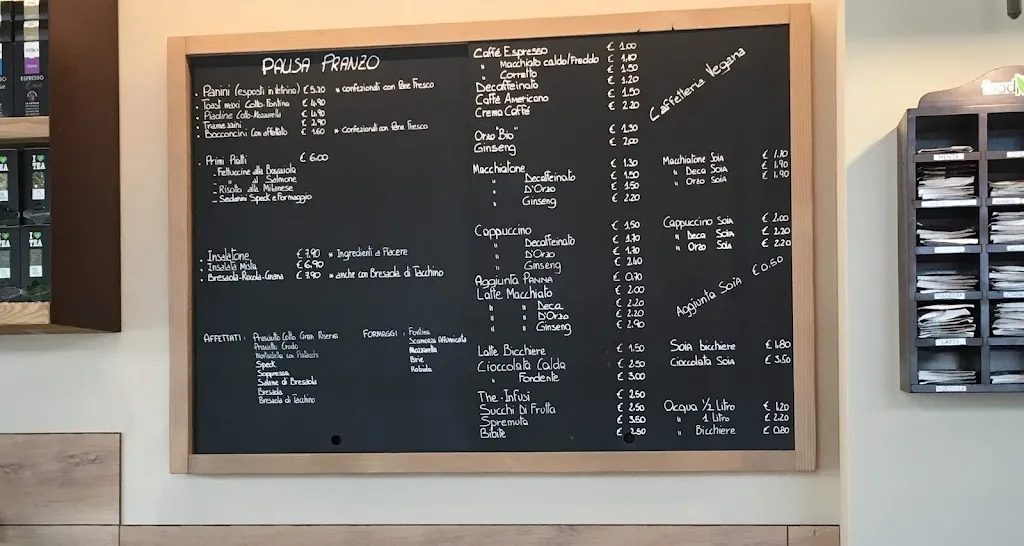 PAUSA PRANZO
• Panini (esposti in Vetrina) € 5.20 » confezionati con Pane Fresco
• Toast maxi Cotto-Fontina € 4.90
• Piadine Cotto-Mozzarella € 4.90
• Tramezzini € 2.90
• Bocconcini con affettato € 1.60 » Confezionati con Pane Fresco
• Primi Piatti € 6.00
- Fettuccine alla Boscaiola
" al Salmone
- Risotto alla Milanese
- Sedanini Speck e Formaggio
• Insalatone € 7.90 » Ingredienti a Piacere
• Insalata Mista € 6.90
• Bresaola-Rucola-Grana € 7.90 » anche con Bresaola di Tacchino
AFFETTATI: Prosciutto Cotto Gran Riserva
Prosciutto Crudo
Mortadella con Pistacchi
Speck
Soppressa
Salame di Bresaola
Bresaola
Bresaola di Tacchino
FORMAGGI: Fontina
Scamorza Affumicata
Mozzarella
Brie
Robiola
Caffé Espresso € 1.00
" Macchiato caldo/Freddo € 1.10
" Corretto € 1.50
Decaffeinato € 1.20
Caffé Americano € 1.50
Crema Caffé € 2.20
Orzo "Bio" € 1.30
Ginseng € 2.00
Macchiatone € 1.30
" Decaffeinato € 1.50
" D'Orzo € 1.50
" Ginseng € 2.20
Cappuccino € 1.50
" Decaffeinato € 1.70
" D'Orzo € 1.70
" Ginseng € 2.40
Aggiunta PANNA € 0.70
Latte Macchiato € 2.00
" " Deca € 2.20
" " D'Orzo € 2.20
" " Ginseng € 2.90
Latte Bicchiere € 1.50
Cioccolata Calda € 2.50
" Fondente € 3.00
The-Infusi € 2.50
Succhi Di Frutta € 2.50
Spremuta € 3.50
Bibite € 2.50
Caffetteria Vegana
Macchiatone Soia € 1.70
" Deca Soia € 1.90
" Orzo Soia € 1.90
Cappuccino Soia € 2.00
" Deca Soia € 2.20
" Orzo Soia € 2.20
Aggiunta SOIA € 0.50
SOIA bicchiere € 1.80
Cioccolata SOIA € 3.50
Acqua 1/2 litro € 1.20
" 1 Litro € 2.20
" Bicchiere € 0.20
ESPRESSO
I ♥ TEA
I ♥ TEA
I ♥ TEA
I ♥ TEA
LATTE